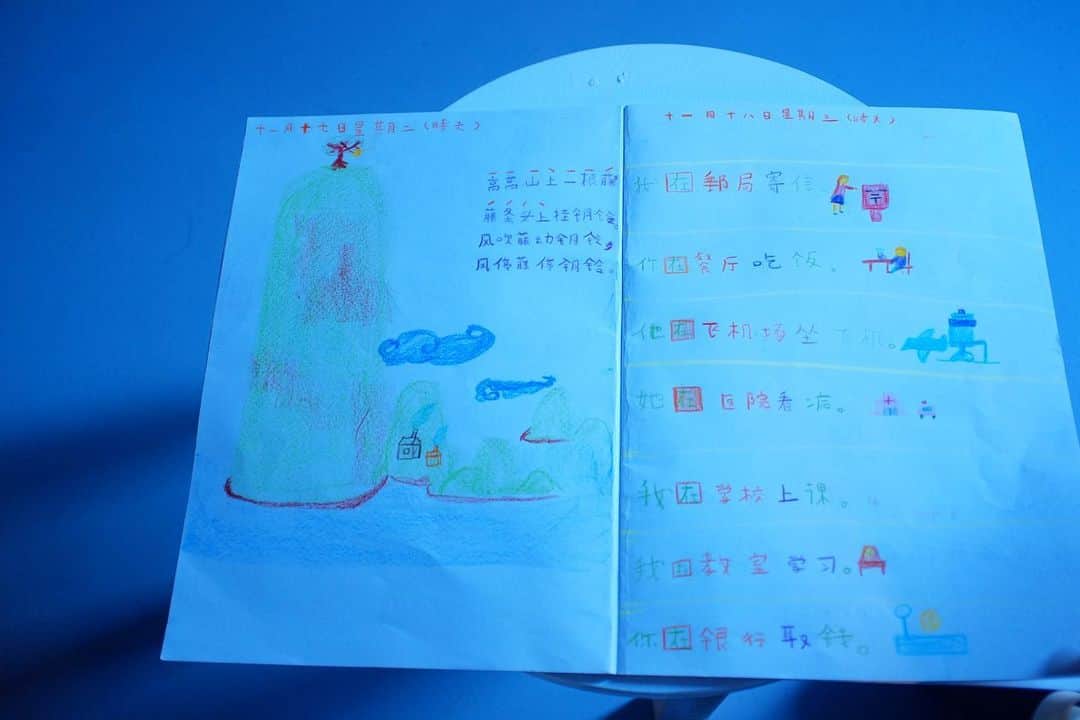 十一月十七日星期二(晴天)
高高山上二根藤
藤条头上挂铜铃。
风吹藤动铜铃,
风停藤停铜铃。
十一月十八日星期三(晴天)
我在郵局寄信
你在餐厅吃饭。
他在飞机场坐飞机。
她在医院看病。
我在学校上课。
我在教室学习。
你在银行取钱。